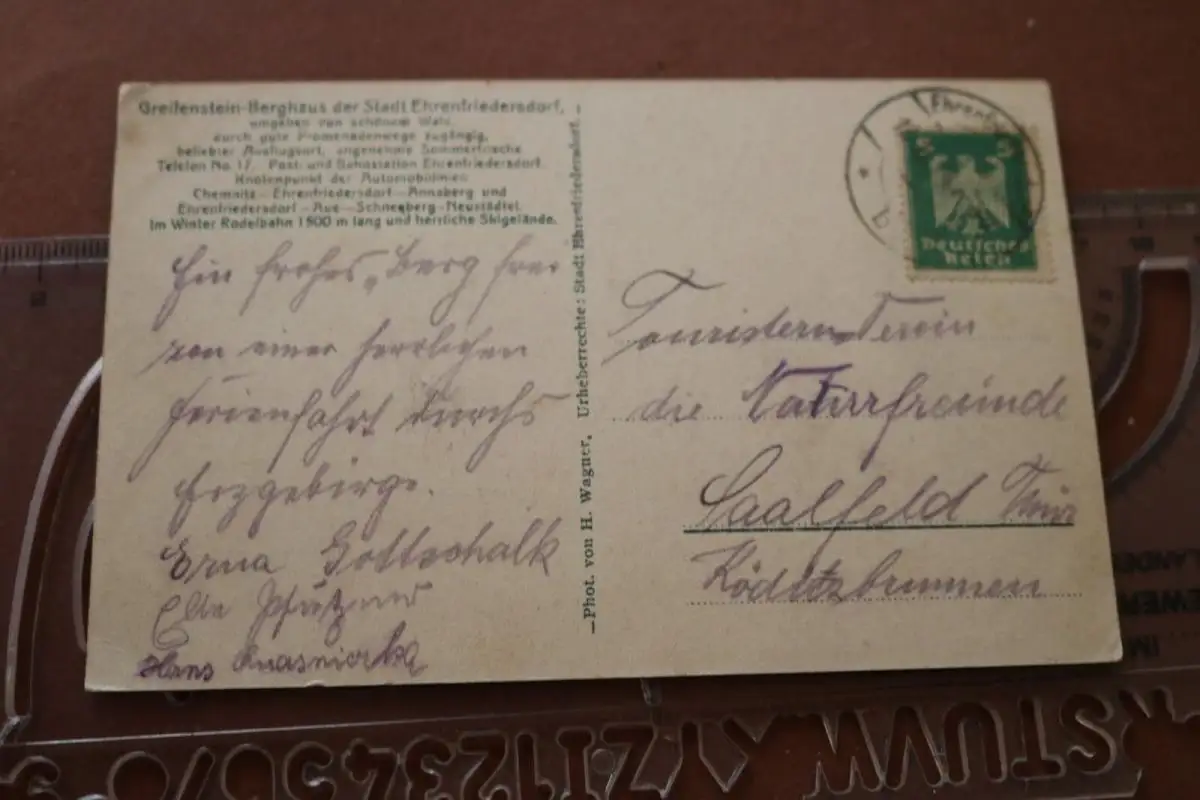 Greifenstein-Berghaus der Stadt Ehrenfriedersdorf,
umgeben von schönem Wald,
durch gute Promenadenwege zugängig,
beliebter Ausflugsort, angenehme Sommerfrische
Telefon No. 17. Post- und Bahnstation Ehrenfriedersdorf.
Knotenpunkt der Automobillinien
Chemnitz-Ehrenfriedersdorf-Annaberg und
Ehrenfriedersdorf-Aue-Schneeberg-Neustädtel.
Im Winter Rodelbahn 1500 m lang und herrliche Skigelände.
Ein frohes "Berg frei
von einer herrlichen
Ferienfahrt durchs
Erzgebirge.
Erna Gottschalk
Pfützner
Hans
Phot. von H. Wagner, Urheberrechte: Stadt Ehrenfriedersdorf.
5 5
Deutsches
Reich
Touristen Verein
die Naturfreunde
Saalfeld Thür
Köditzbrunnen
STUVW
YZ1123456